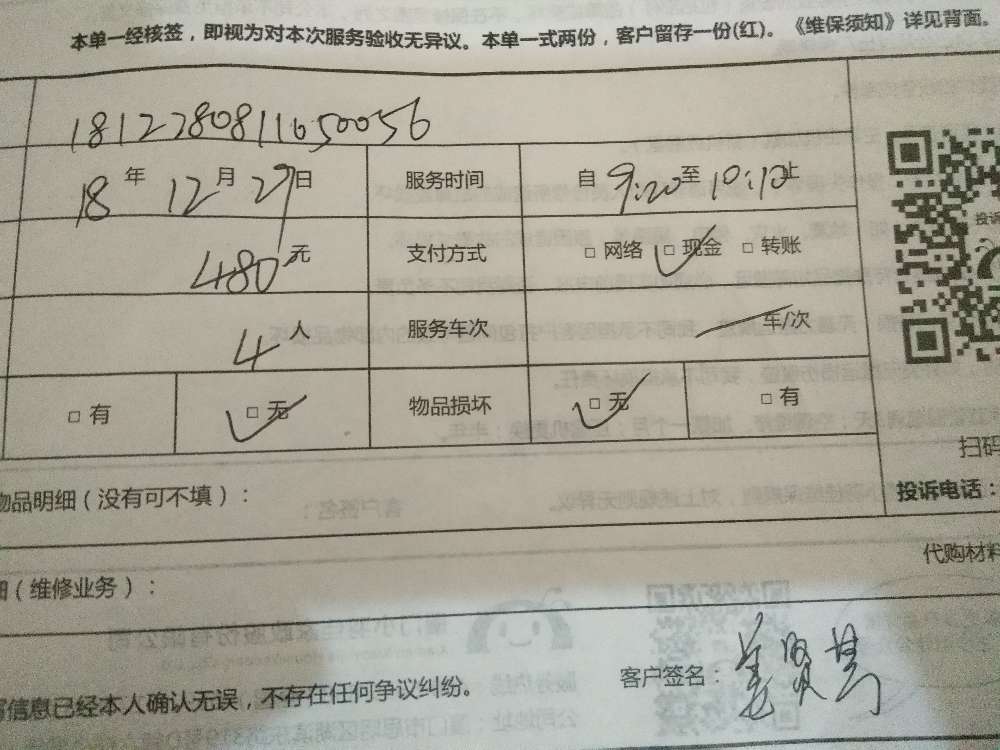 本单一经核签，即视为对本次服务验收无异议。本单一式两份，客户留存一份(红)。《维保须知》详见背面。
1812280811650056
18年12月29日 服务时间 自9:20至10:10止
480元 支付方式 □ 网络 □ 现金 □ 转账
4人 服务车次 车/次
□ 有 □ 无 物品损坏 □ 无 □ 有
投诉
扫码
物品明细（没有可不填）：
投诉电话：
代购材料
细（维修业务）：
客户签名：
信息已经本人确认无误，不存在任何争议纠纷。